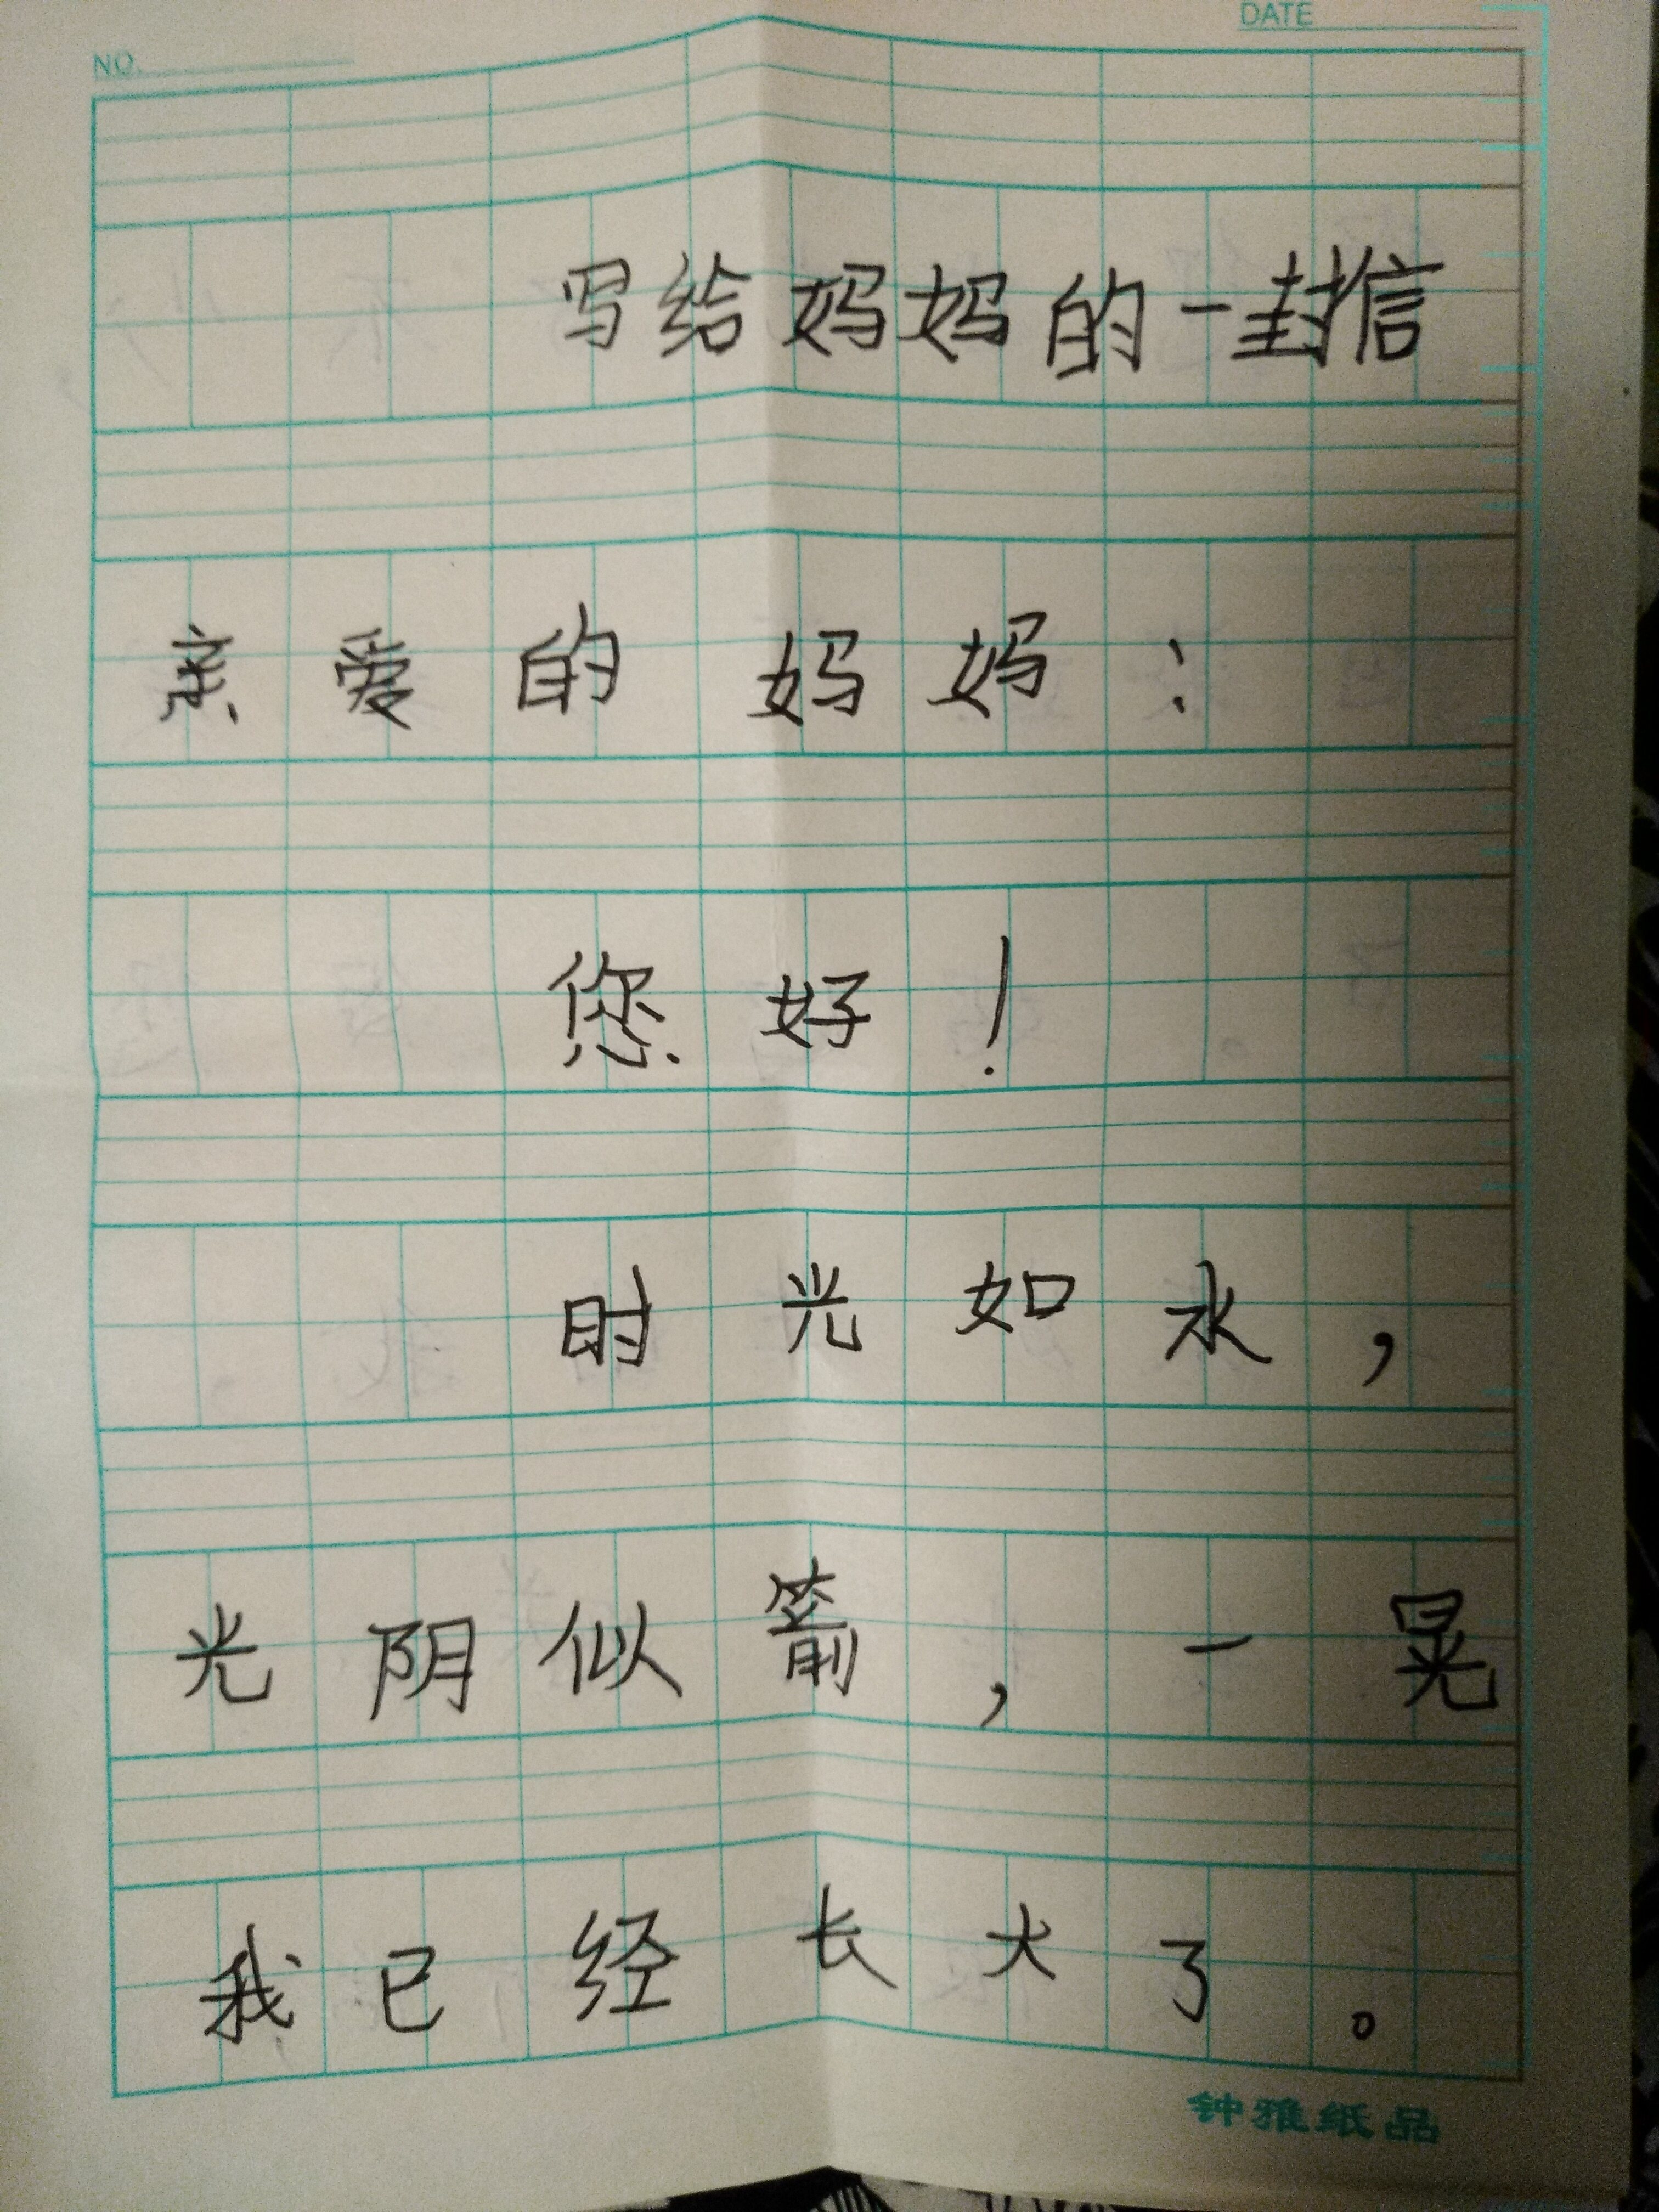 NO.
DATE
写给妈妈的一封信
亲爱的妈妈：
您好！
时光如水，
光阴似箭，一晃
我已经长大了。
钟雅纸品